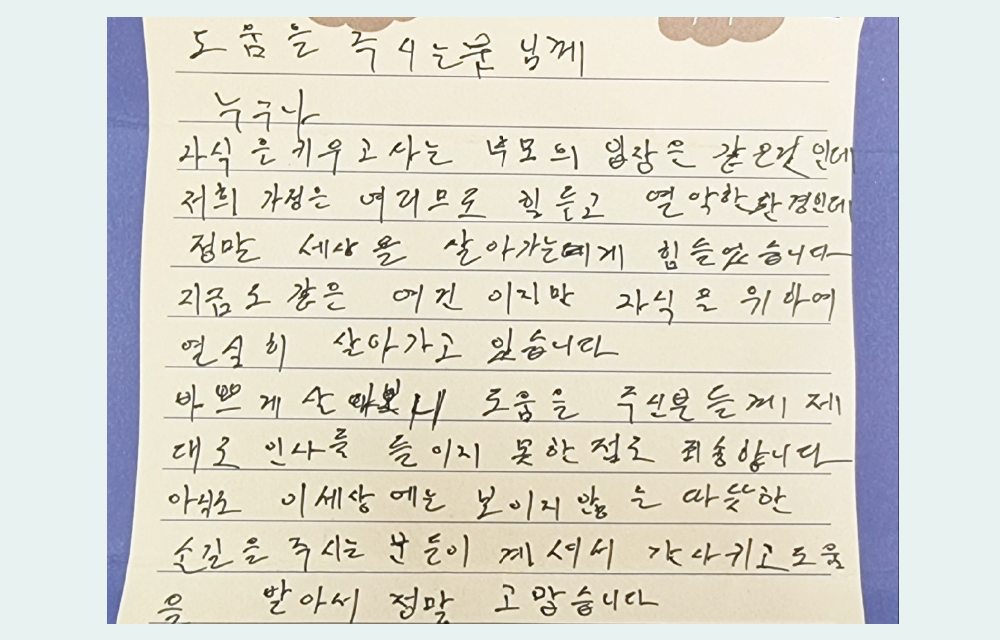 도움을 주시는분님께
누구나
자식은키우고사는 부모의 입장은 같은것인데
저희 가정은 여러므로 힘들고 열악한환경인데
정말 세상을 살아가는데에게 힘들었습니다
지금도 같은 여건 이지만 자식을 위하여
열심히 살아가고 있습니다
바쁘게 도움을 주신분들께 제
대로 인사를 들이지 못한점도 죄송합니다
아식도 이세상에는 보이지않는 따뜻한
손길을 주시는분들이 계셔서 도움
을 받아서 정말 고맙습니다